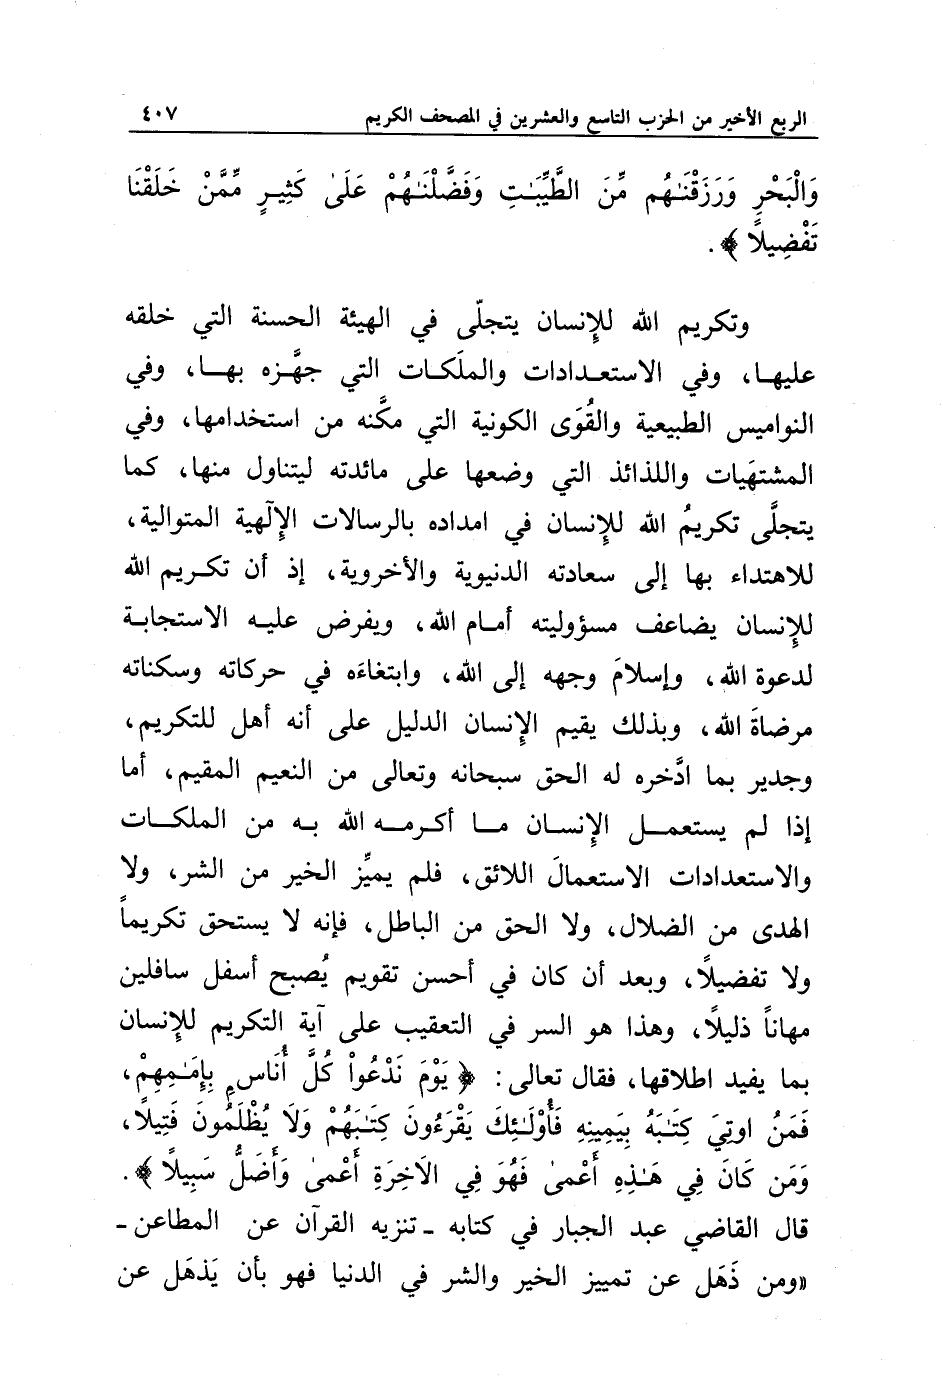 الربع الأخير من الحزب التاسع والعشرين في المصحف الكريم ٤٠٧
وَالْبَحْرِ وَرَزَقْنَـٰهُم مِّنَ الطَّيِّبَـٰتِ وَفَضَّلْنَـٰهُمْ عَلَىٰ كَثِيرٍ مِّمَّنْ خَلَقْنَا
تَفْضِيلًا ﴾ .
وتكريم الله للإنسان يتجلّى في الهيئة الحسنة التي خلقه
عليها، وفي الاستعدادات والملَكات التي جهَّزه بها، وفي
النواميس الطبيعية والقُوَى الكونية التي مكَّنه من استخدامها، وفي
المشتهَيات واللذائذ التي وضعها على مائدته ليتناول منها، كما
يتجلَّى تكريمُ الله للإنسان في امداده بالرسالات الإلٓهية المتوالية،
للاهتداء بها إلى سعادته الدنيوية والأخروية، إذ أن تكريم الله
للإنسان يضاعف مسؤوليته أمام الله، ويفرض عليه الاستجابة
لدعوة الله، وإسلامَ وجهه إلى الله، وابتغاءَه في حركاته وسكناته
مرضاةَ الله، وبذلك يقيم الإنسان الدليل على أنه أهل للتكريم،
وجدير بما ادَّخره له الحق سبحانه وتعالى من النعيم المقيم، أما
إذا لم يستعمل الإنسان ما أكرمه الله به من الملكات
والاستعدادات الاستعمالَ اللائق، فلم يميِّز الخير من الشر، ولا
الهدى من الضلال، ولا الحق من الباطل، فإنه لا يستحق تكريماً
ولا تفضيلاً، وبعد أن كان في أحسن تقويم يُصبح أسفل سافلين
مهاناً ذليلاً، وهذا هو السر في التعقيب على آية التكريم للإنسان
بما يفيد اطلاقها، فقال تعالى: ﴿ يَوْمَ نَدْعُواْ كُلَّ أُنَاسٍ بِإِمَـٰمِهِمْ،
فَمَنُ اوتِيَ كِتَـٰبَهُ بِيَمِينِهِ فَأُوْلَـٰئِكَ يَقْرَءُونَ كِتَـٰبَهُمْ وَلَا يُظْلَمُونَ فَتِيلًا،
وَمَن كَانَ فِي هَـٰذِهِ أَعْمىٰ فَهُوَ فِي الَاخِرَةِ أَعْمىٰ وَأَضَلُّ سَبِيلًا ﴾.
قال القاضي عبد الجبار في كتابه ـ تنزيه القرآن عن المطاعن ـ
«ومن ذَهَل عن تمييز الخير والشر في الدنيا فهو بأن يَذهَل عن